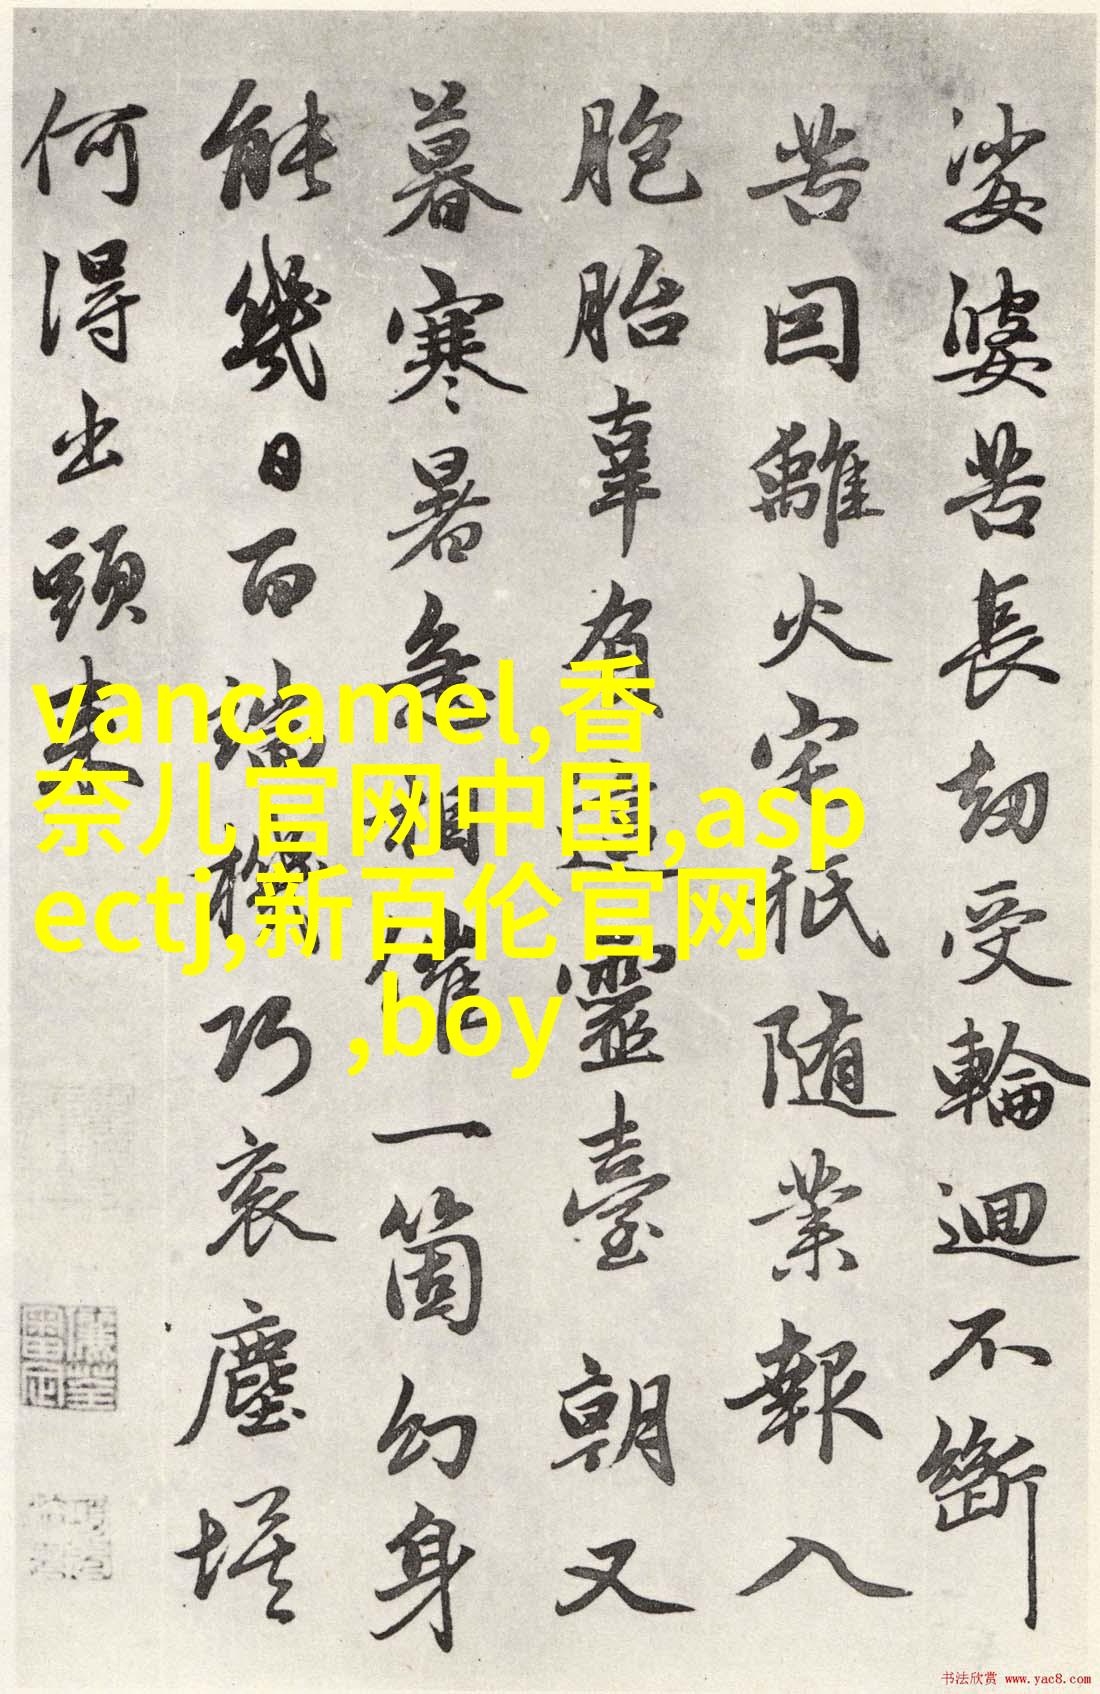 娑婆苦長劫受輪迴不斷
苦因離火宅秖随業報入
胞胎辜有這靈臺朝又
暮寒暑急相催一箇幻身
能幾日百端機巧衮塵埃
何得出頭来
vancamel,香
奈儿官网中国,asp
ectj,新百伦官网
,boy
书法欣赏 www.yac8.com